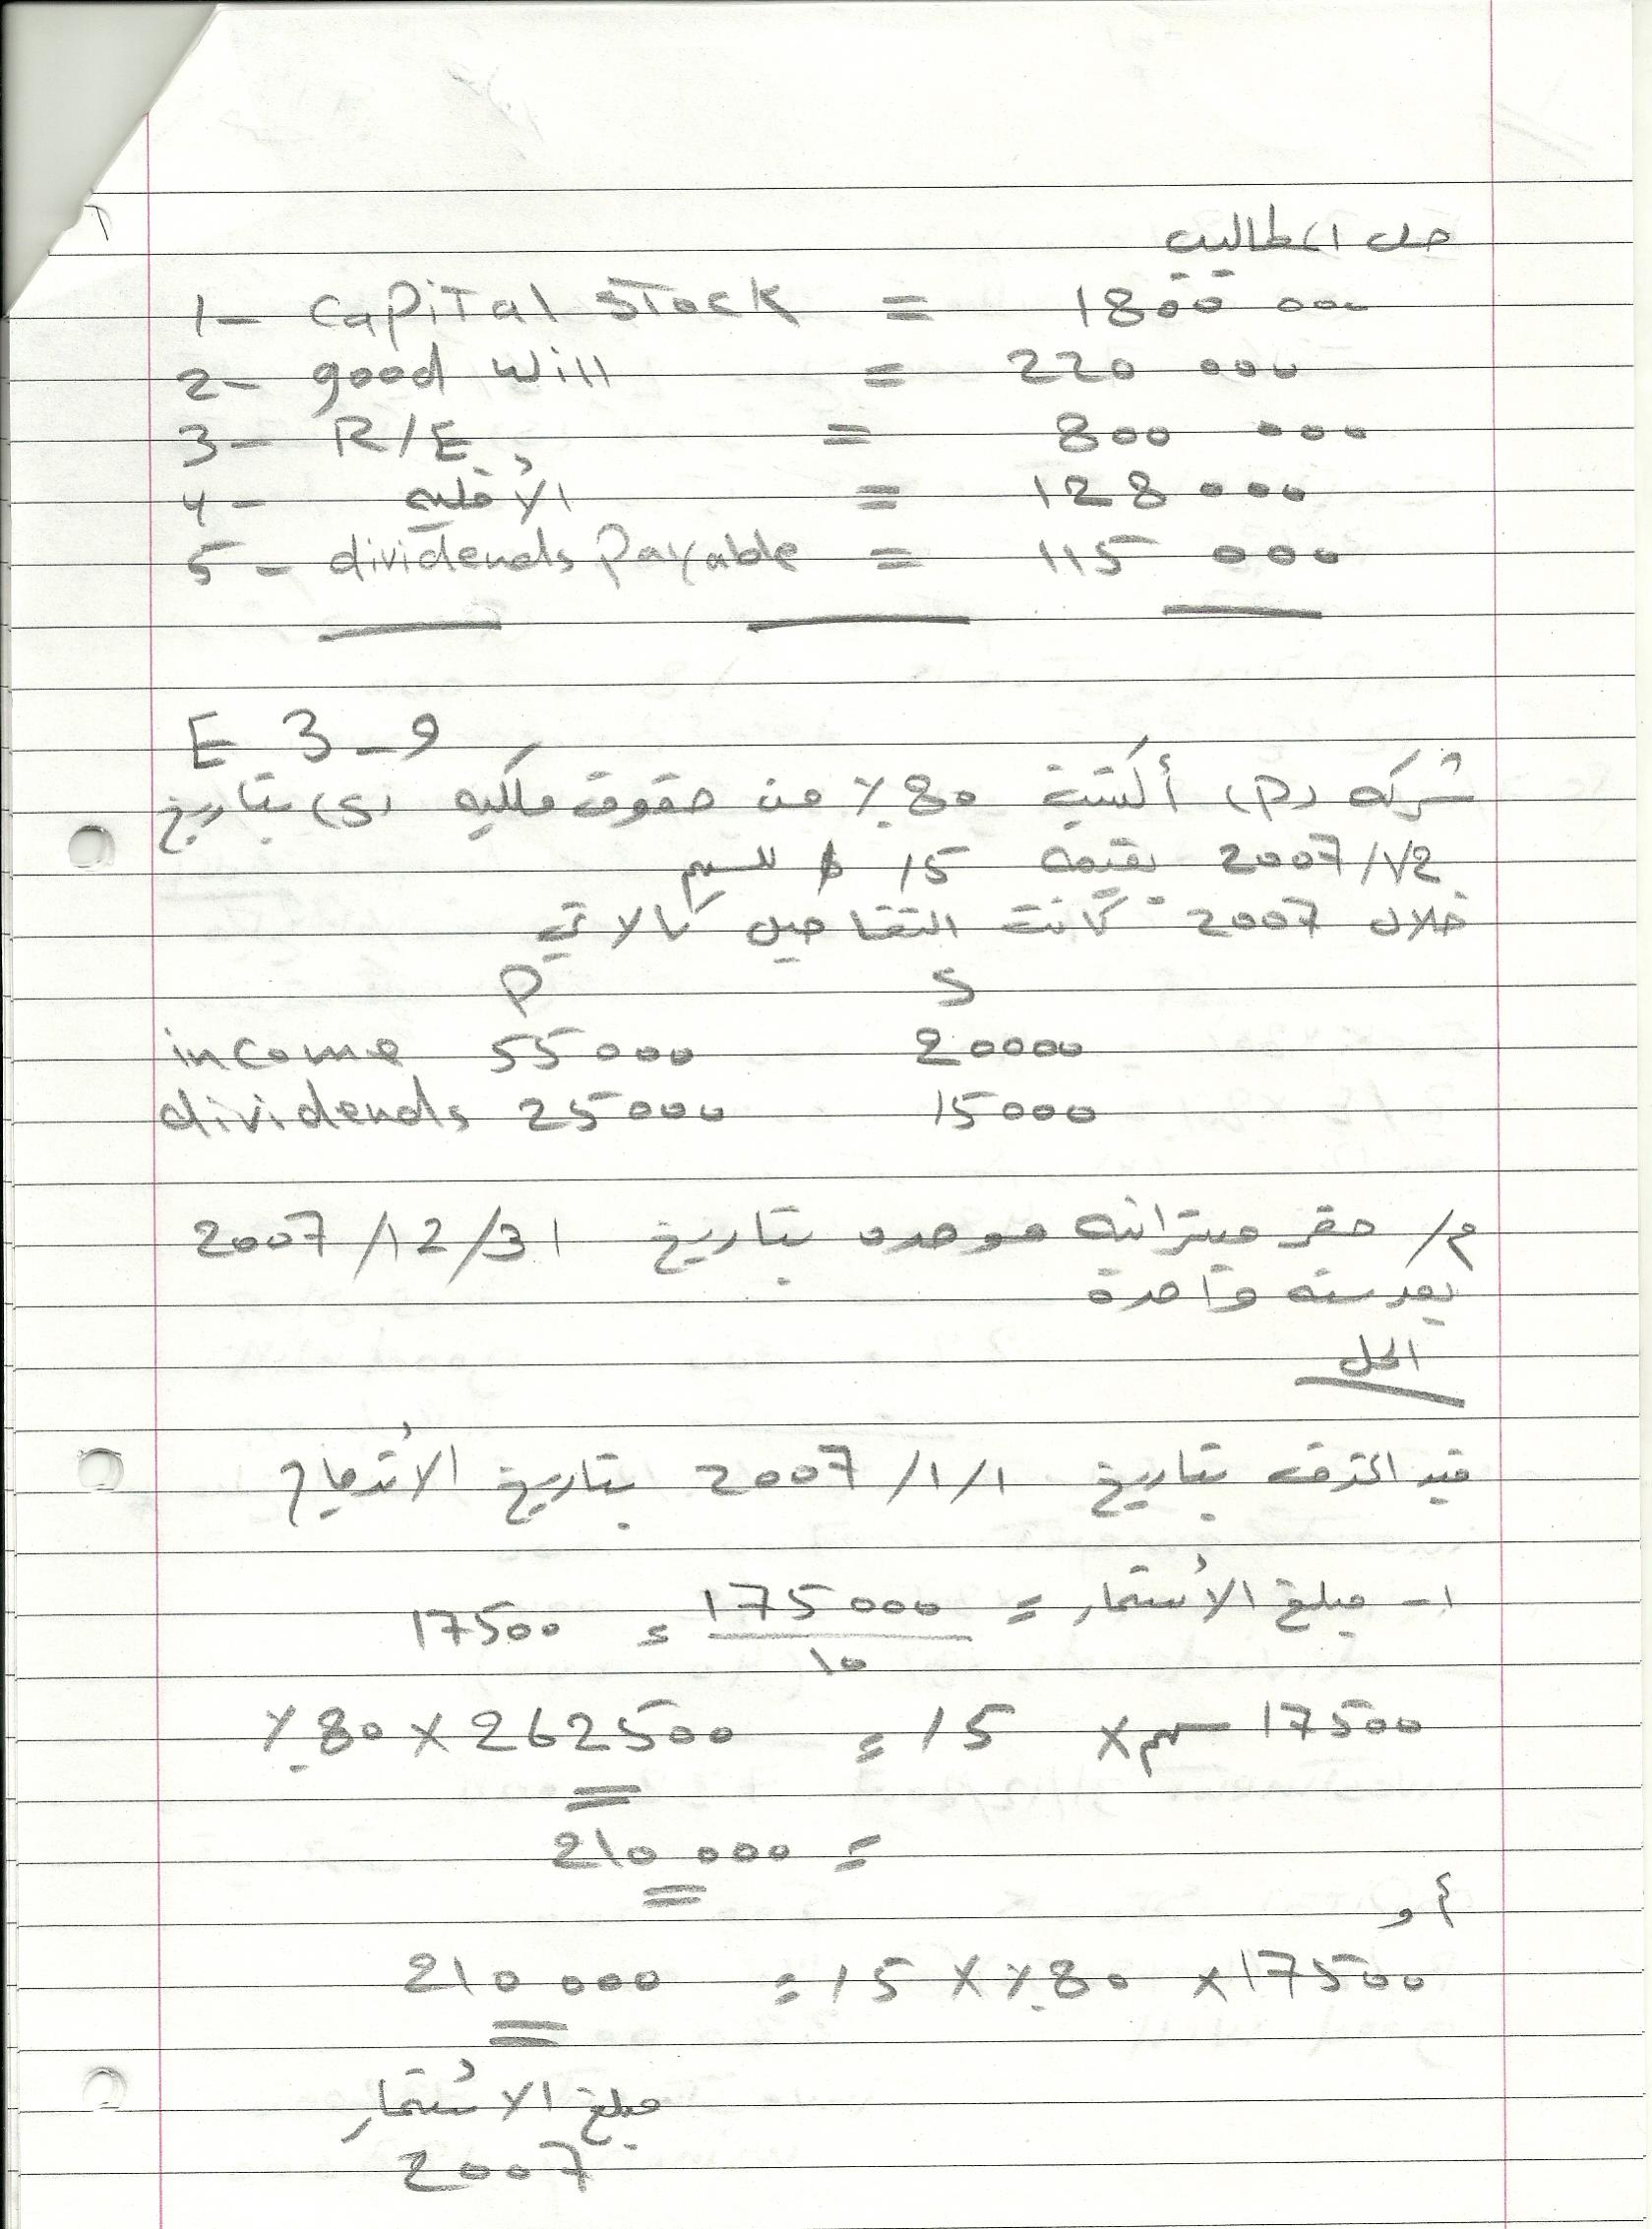 حل المطاليب
1- Capital stock = 1800 000
2- good will = 220 000
3- R/E = 800 000
4- الأقليه = 128 000
5- dividends Payable = 115 000
E 3-9
شركه (P) أكتسبت 80٪ من حقوق ملكيه (S) بتاريخ
2007/1/2 بقيمه 15 $ للسهم
خلال 2007 كانت التفاصيل كالاتي
P S
income 55000 20000
dividends 25000 15000
م/ حضر ميزانيه موحده بتاريخ 2007/12/31
بعد سنه واحدة
الحل
قيد الشراء بتاريخ 2007/1/1 بتاريخ الأندماج
1- مبلغ الأستثمار = 175000 / 10 = 17500
17500 سهم × 15 = 262500 × 80٪
= 210 000
أو
17500 × 80٪ × 15 = 210 000
مبلغ الأستثمار
2007